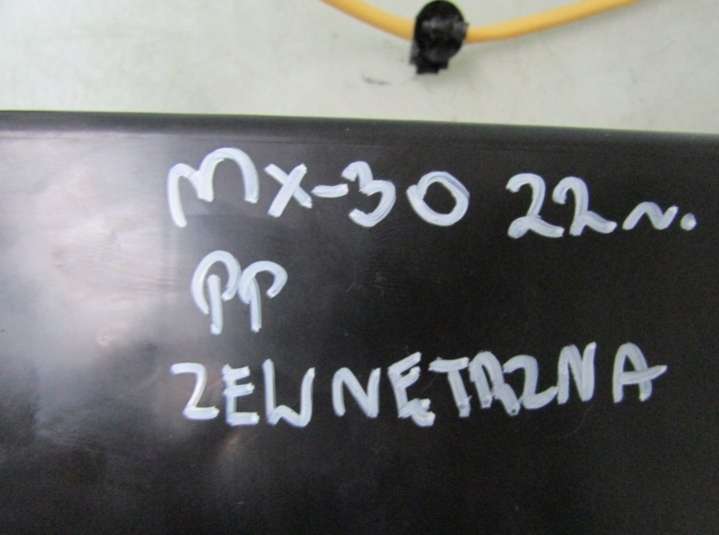 MX-30 22r.
PP
ZEWNĘTRZNA